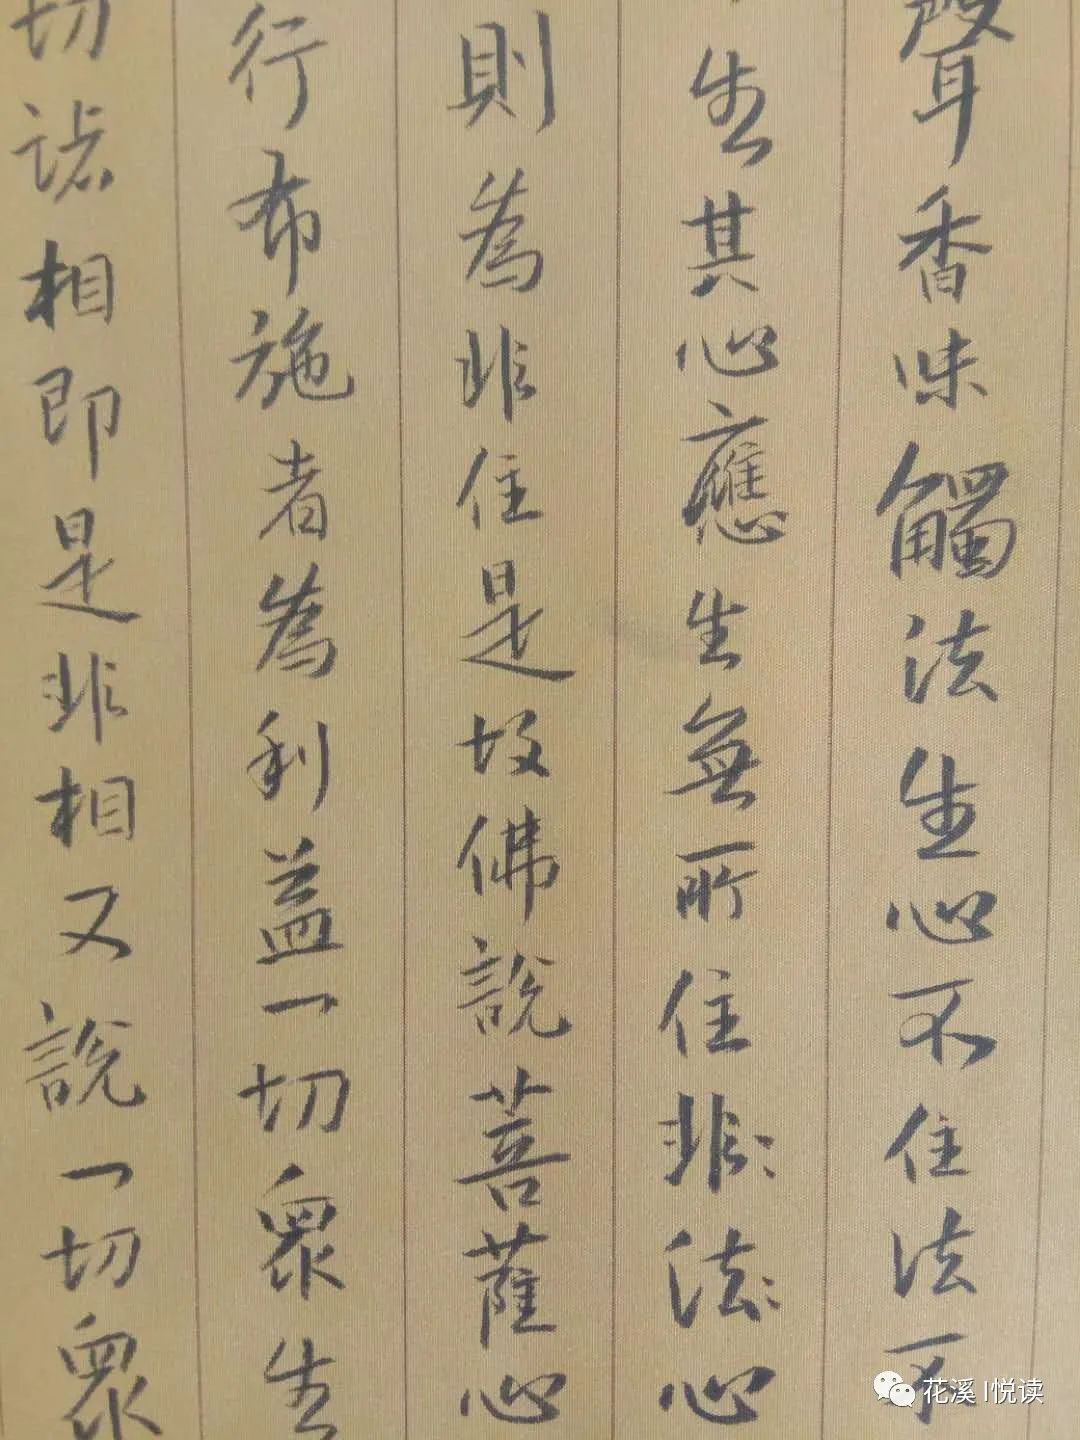 聲香味觸法生心不住法不
生其心應生無所住非法心
則為非住是故佛說菩薩心
行布施者為利益一切眾生
切諸相即是非相又說一切眾
花溪 |悦读